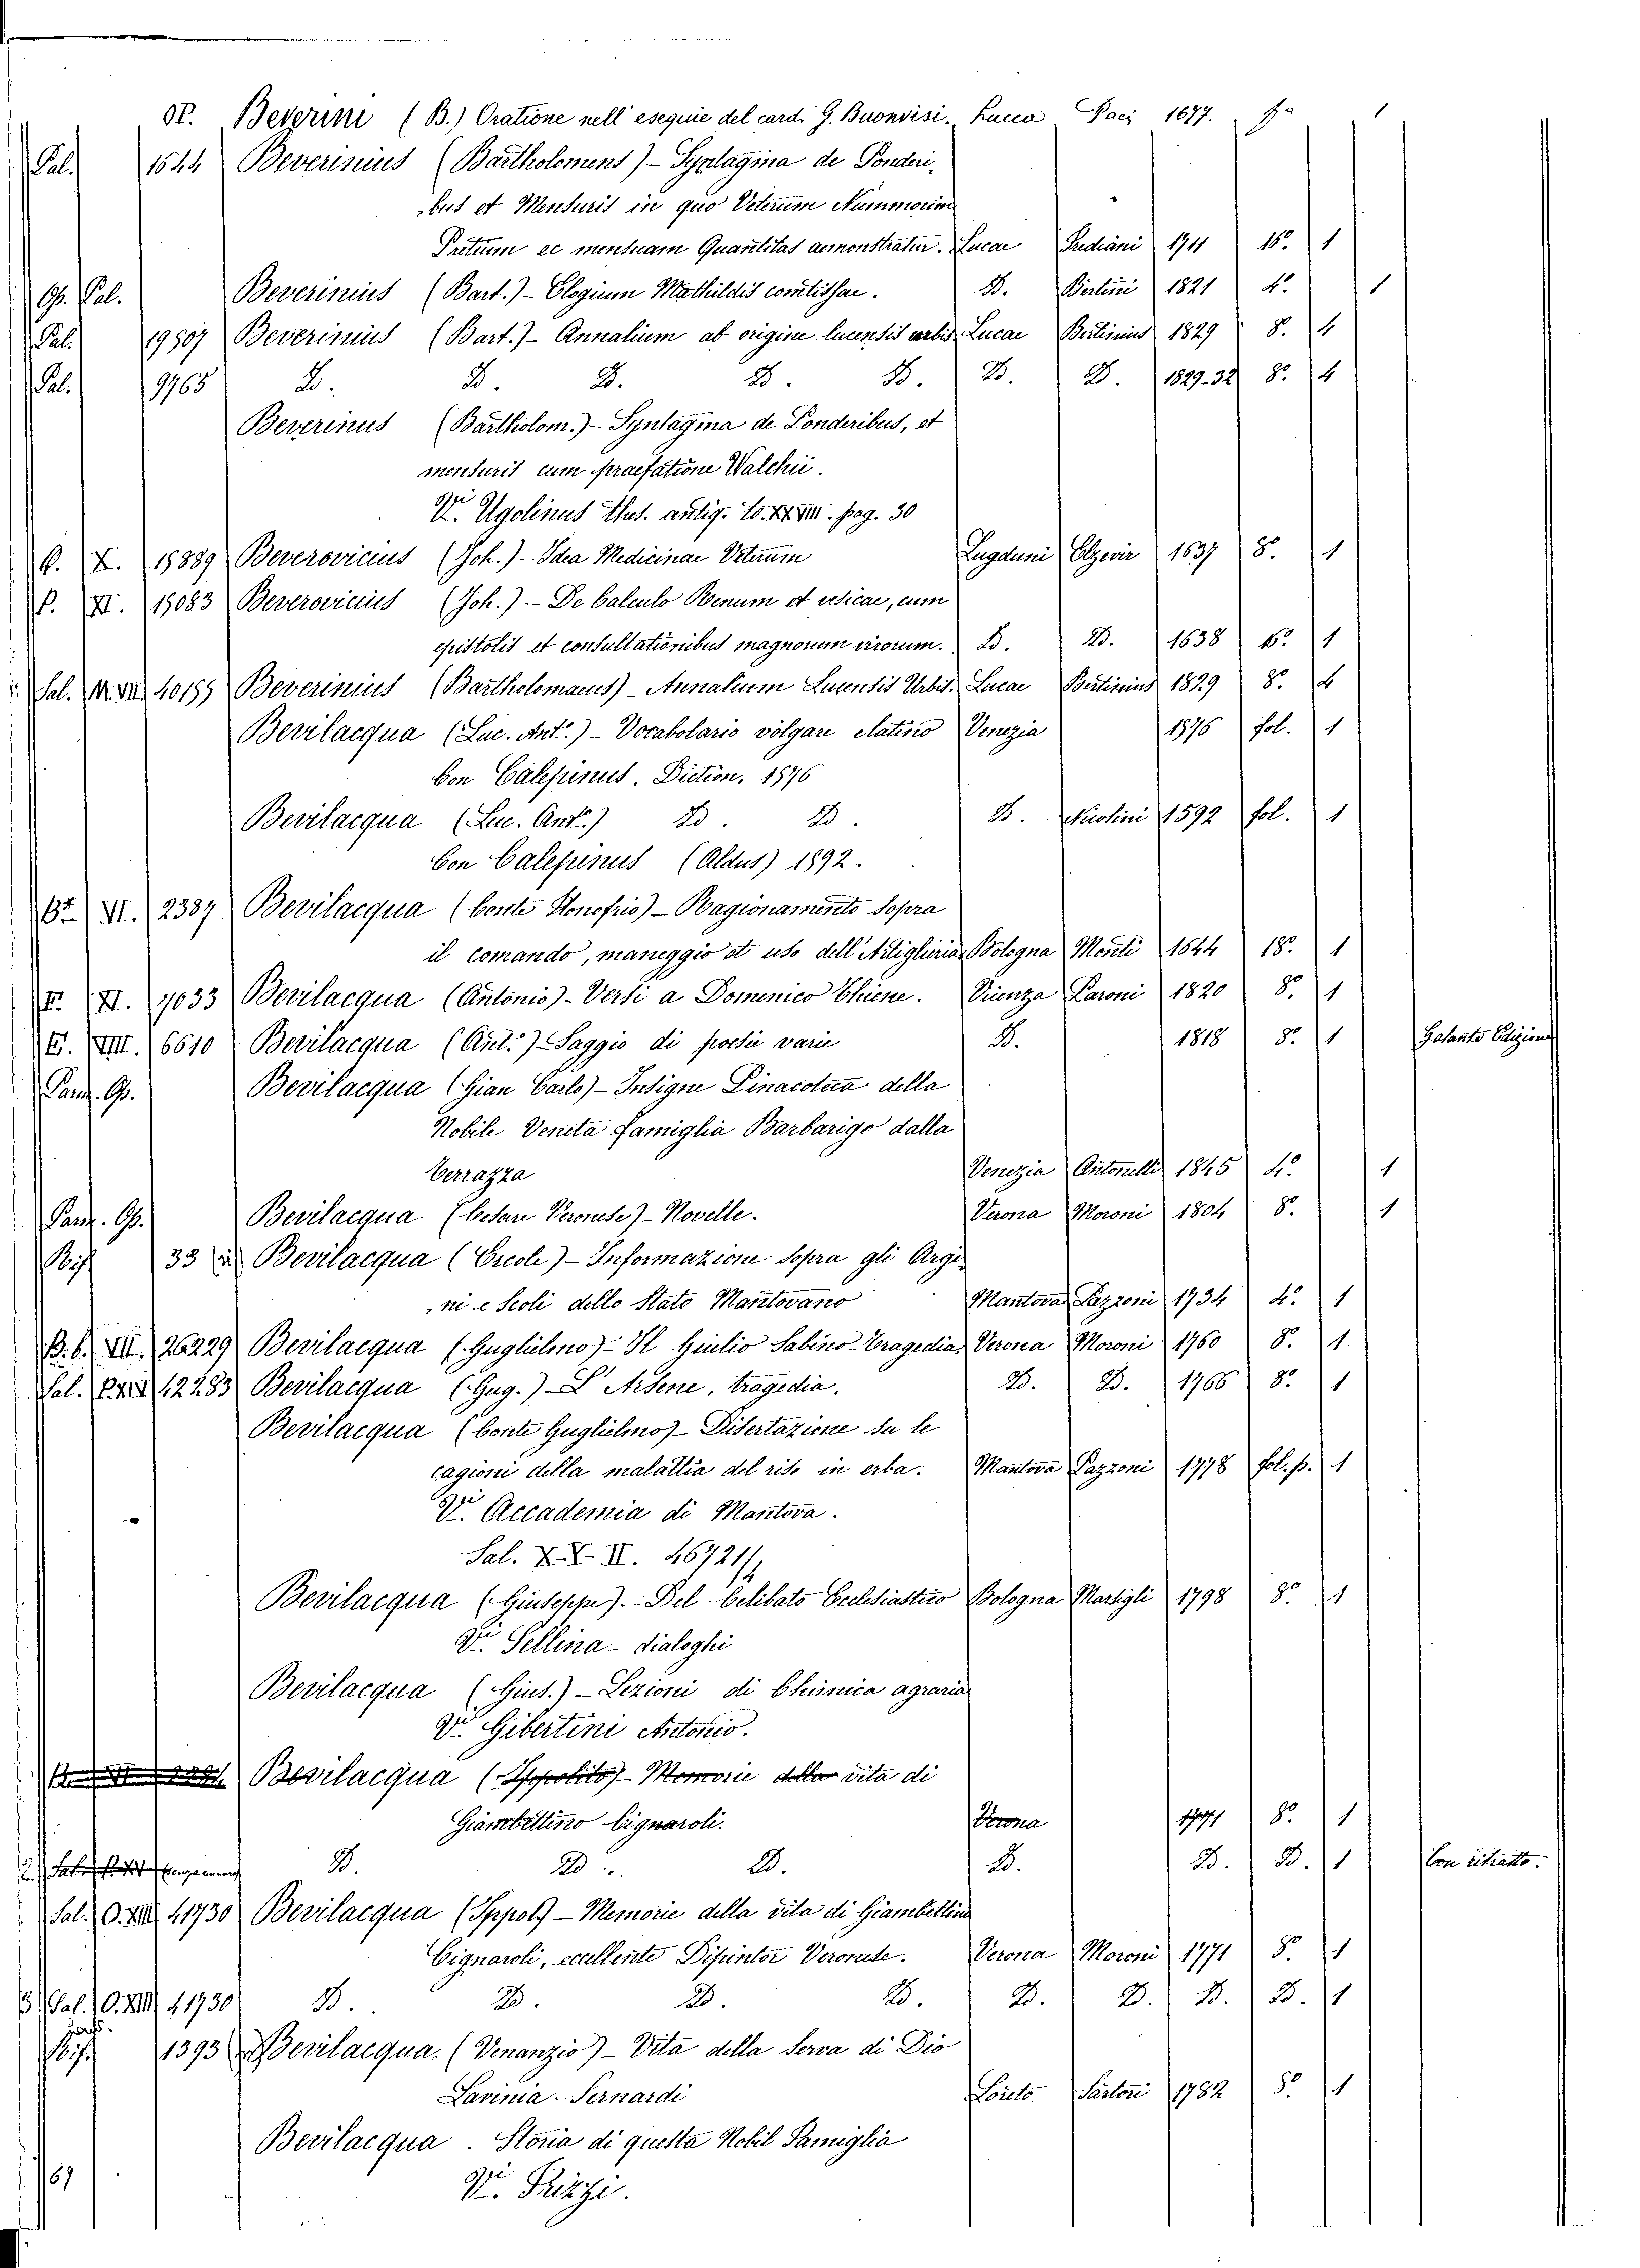 OP. Beverini (B.) Oratione nell' esequie del card. G. Buonvisi. Lucca Paci 1677. 1
Pal. 1644 Beverinius (Bartholomeus) - Syntagma de Ponderi-
bus et Mensuris in quo Veterum Nummorum
Pretium ac mensuram Quantitas demonstratur. Lucae Frediani 1711 16º. 1
Gr. Pal. Beverinius (Bart.) - Elogium Mathildis comitissae. D. Bertini 1821 4º. 1
Pal. 19507 Beverinius (Bart.) - Annalium ab origine lucensis urbis Lucae Bertinius 1829 8. 4
Pal. 9765 D. D. D. D. D. D. D. 1829-32 8º. 4
Beverinus (Bartholom.) - Syntagma de Ponderibus, et
mensuris cum praefatione Walchii.
Vi. Ugolinus Thes. antiq. to. XXVIII. pag. 30
C. X. 15889 Beverovicius (Joh.) - Idea Medicinae Veterum Lugduni Elzevir 1637 8º. 1
P. XI. 15083 Beverovicius (Joh.) - De Calculo Renum et vesicae, cum
epistolis et consultationibus magnorum virorum. D. D. 1638 1
Sal. M.VII 40155 Beverinius (Bartholomaeus) - Annalium Lucensis Urbis. Lucae Bertinius 1829 8º. 4
Bevilacqua (Luc. Ant.) - Vocabolario volgare e latino Venezia 1576 fol. 1
Con Calepinus. Diction. 1576
Bevilacqua (Luc. Ant.) D. D. D. Nicolini 1592 fol. 1
Con Calepinus (Aldus) 1592.
VI. 2387 Bevilacqua (Conte Honofrio) - Ragionamento sopra
il comando, maneggio et uso dell'Artiglieria Bologna Monti 1644 18º. 1
F. XI. 7033 Bevilacqua (Antonio) - Versi a Domenico Chiene. Vicenza Paroni 1820 8º. 1
E. VIII. 6610 Bevilacqua (Ant.) - Saggio di poesie varie D. 1818 8º. 1 Galante Edizione
Panz. Gr. Bevilacqua (Gian Carlo) - Insigne Pinacoteca della
Nobile Veneta famiglia Barbarigo dalla
Terrazza Venezia Antonelli 1845 4º. 1
Panz. Gr. Bevilacqua (Cesare Veronese) - Novelle. Verona Moroni 1804 8º. 1
Rif. 33 Bevilacqua (Ercole) - Informazione sopra gli Argi-
ni e Scoli dello Stato Mantovano Mantova Pazzoni 1734 4º. 1
B.C. VII. 26229 Bevilacqua (Guglielmo) - Il Giulio Sabino - Tragedia. Verona Moroni 1760 8º. 1
Sal. 12283 Bevilacqua (Gug.) - L'Arsene, tragedia. D. D. 1766 8º. 1
Bevilacqua (Conte Guglielmo) - Disertazione su le
cagioni della malattia del riso in erba. Mantova Pazzoni 1778 fol. p. 1
Vi. Accademia di Mantova.
Sal. X.V. II. 46721/1
Bevilacqua (Giuseppe) - Del Celibato Ecclesiastico Bologna Marsigli 1798 8º. 1
Vi. Sellina - dialoghi
Bevilacqua (Gius.) - Lezioni di Chimica agraria
Vi. Gibertini Antonio.
Bevilacqua (Ippolito) - Memorie della vita di
Giambettino Cignaroli. Verona 1771 8º. 1
2 D. D. D. D. D. D. 1 Con ritratto.
Sal. O.XIII 41730 Bevilacqua (Ippol.) - Memorie della vita di Giambettino
Cignaroli, eccellente Dipintor Veronese. Verona Moroni 1771 8º. 1
3 Sal. O.XIII 41730 D. D. D. D. D. D. D. D. 1
Rif. 1393 Bevilacqua. (Venanzio) - Vita della Serva di Dio
Lavinia Sernardi Loreto Sartori 1782 8º. 1
Bevilacqua. Storia di questa Nobil Famiglia
Vi. Frizzi.
167